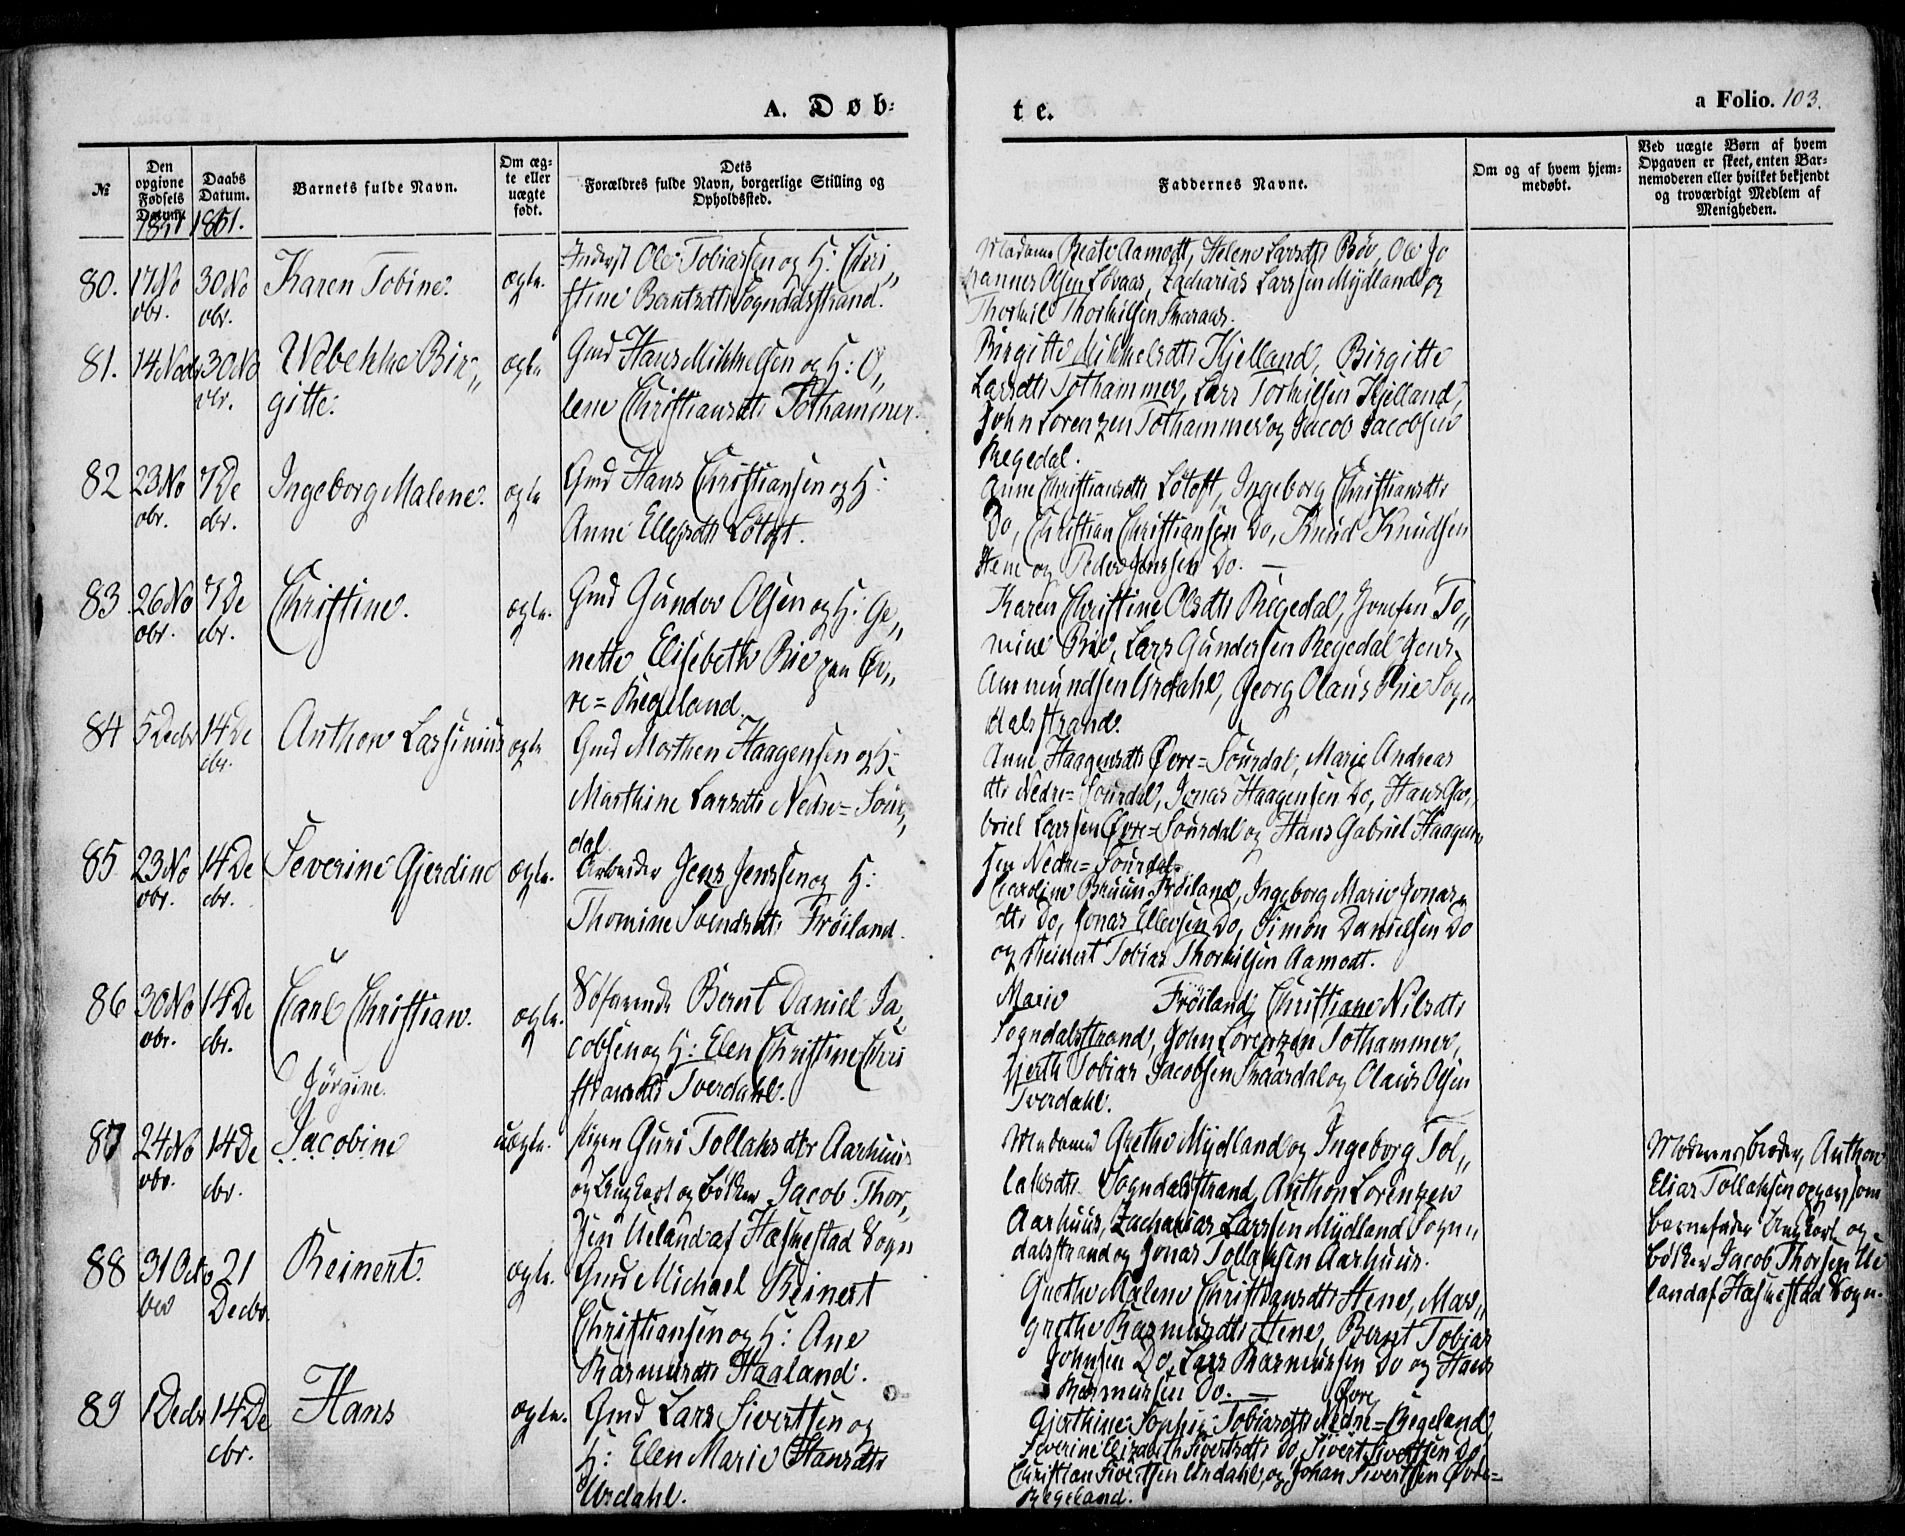 A. Døb-
te.
a Folio. 103.
№
Den opgivne Fødsels Datum.
Daabs Datum.
Barnets fulde Navn.
Om ægte eller uægte født.
Dets Forældres fulde Navn, borgerlige Stilling og Opholdssted.
Faddernes Navne.
Om og af hvem hjemmedøbt.
Ved uægte Børn af hvem Opgaven er skeet, enten Barnemoderen eller hvilket bekjendt og troværdigt Medlem af Menigheden.
1851 1851.
80. 17 No 30 No Karen Tobine. ægte. Inderst Ole Tobiassen og H: Chri„
vbr. vbr. stine Berntsdtr Sogndalsstrand.
Madame Beate Aamodt, Helene Larsdtr Bøe, Ole Jo
hannes Olsen Løvaas, Zacharias Larssen Mydland og
Thorkil Thorkilsen
81. 14 Novbr 30 No Webekke Bir„ ægte Gmd Hans Mikkelsen og H: O„
vbr. gitte. lene Christiansdtr Tothammer.
Birgitte Mikkelsdtr Kjelland, Birgitte
Larsdtr Tothammer, Lars Torkilsen Kjelland,
John Lorenzen Tothammer og Jacob Jacobsen
Regedal.
82 23 No 7 De Ingeborg Malene. ægte Gmd Hans Christiansen og H:
vbr. cbr. Anne Ellefsdtr Løtoft.
Anne Christiansdtr Løtoft, Ingeborg Christiansdtr
Do, Christian Christiansen Do, Knud Knudsen
Hene og Peder Jenssen Do. —
83 26 No 7 De Christine. ægte. Gmd Gunder Olsen og H: Ge„
vbr. cbr. nette Elisebeth Bie paa Øv„
re=Regeland.
Karen Christine Olsdtr Regedal, Jomfru To„
mine Bie, Lars Gundersen Regedal Jens
Ammundsen Urdahl, Georg Olaus Bie Sogn
dalsstrand.
84 5 Decbr 14 De Anthon Larsinius ægte Gmd Morthen Haagensen og H:
cbr. Marthine Larsdtr Nedre=Sour„
dal.
Anne Haagensdtr Øvre=Sourdal, Marie Andreas
dtr Nedre=Sourdal, Jonas Haagensen Do, Hans Ga„
briel Larssen Øvre=Sourdal og Hans Gabriel Haagen„
sen Nedre=Sourdal.
85 23 No 14 De Severine Gjerdine ægte. Arbeider Jens Jenssen og H:
vbr. cbr. Thomine Svendsdtr Frøiland.
Caroline Bruun Frøiland, Ingeborg Marie Jonas„
dtr Do, Jonas Ellevsen Do, Simon Danielsen Do
og Reinert Tobias Thorkilsen Aamodt.
86 30 No 14 De Carl Christian. ægte. Søfarende Bernt Daniel Ja„
vbr. cbr. cobsen og H: Elen Christine Chri
stiansdtr Tverdahl.
Marie Frøiland, Christiane Nilsdtr
Sogndalsstrand, John Lorenzen Tothammer,
Gjerth Tobias Jacobsen Skaardal og Olaus Olsen
Tverdahl.
Jürgine.
87 24 No 14 De Jacobine uægte. Pigen Guri Tollaksdtr Aarhuus
vbr. cbr. og Ungkarl og bødker Jacob Thor„
sen Ueland af Hæskestad Sogn
Madame Grethe Mydland og Ingeborg Tol„
laksdtr Sogndalsstrand, Anthon Lorenzen
Aarhuus, Zacharias Larssen Mydland Sogn„
dalsstrand og Jonas Tollaksen Aarhuus.
Moderens broder, Anthon
Elias Tollaksen opgav som
barnefader Ungkarl og
bødker Jacob Thorsen Ue
land af Hæskestad Sogn.
88 31 Octo 21 Reinert. ægte. Gmd Michael Reinert
ber Decbr. Christiansen og H: Ane
Rasmusdtr Haaland.
Grethe Malene Christiansdtr Hene, Mar„
grethe Rasmusdtr Hene, Bernt Tobias
Johnsen Do, Lars Rasmussen Do og Hans
Rasmussen Do. —
89 1 Decbr 14 De Hans ægte. Gmd Lars Sivertsen og
cbr. H: Elen Marie Hansdtr
Urdahl.
Øvre
Gjerthine Sophie Tobiasdtr Nedre=Regeland,
Severine Elizabeth Sivertsdtr Do, Sivert Sivertsen Do,
Christian Sivertsen Urdahl, og Johan Sivertsen Øvre=
Regeland.